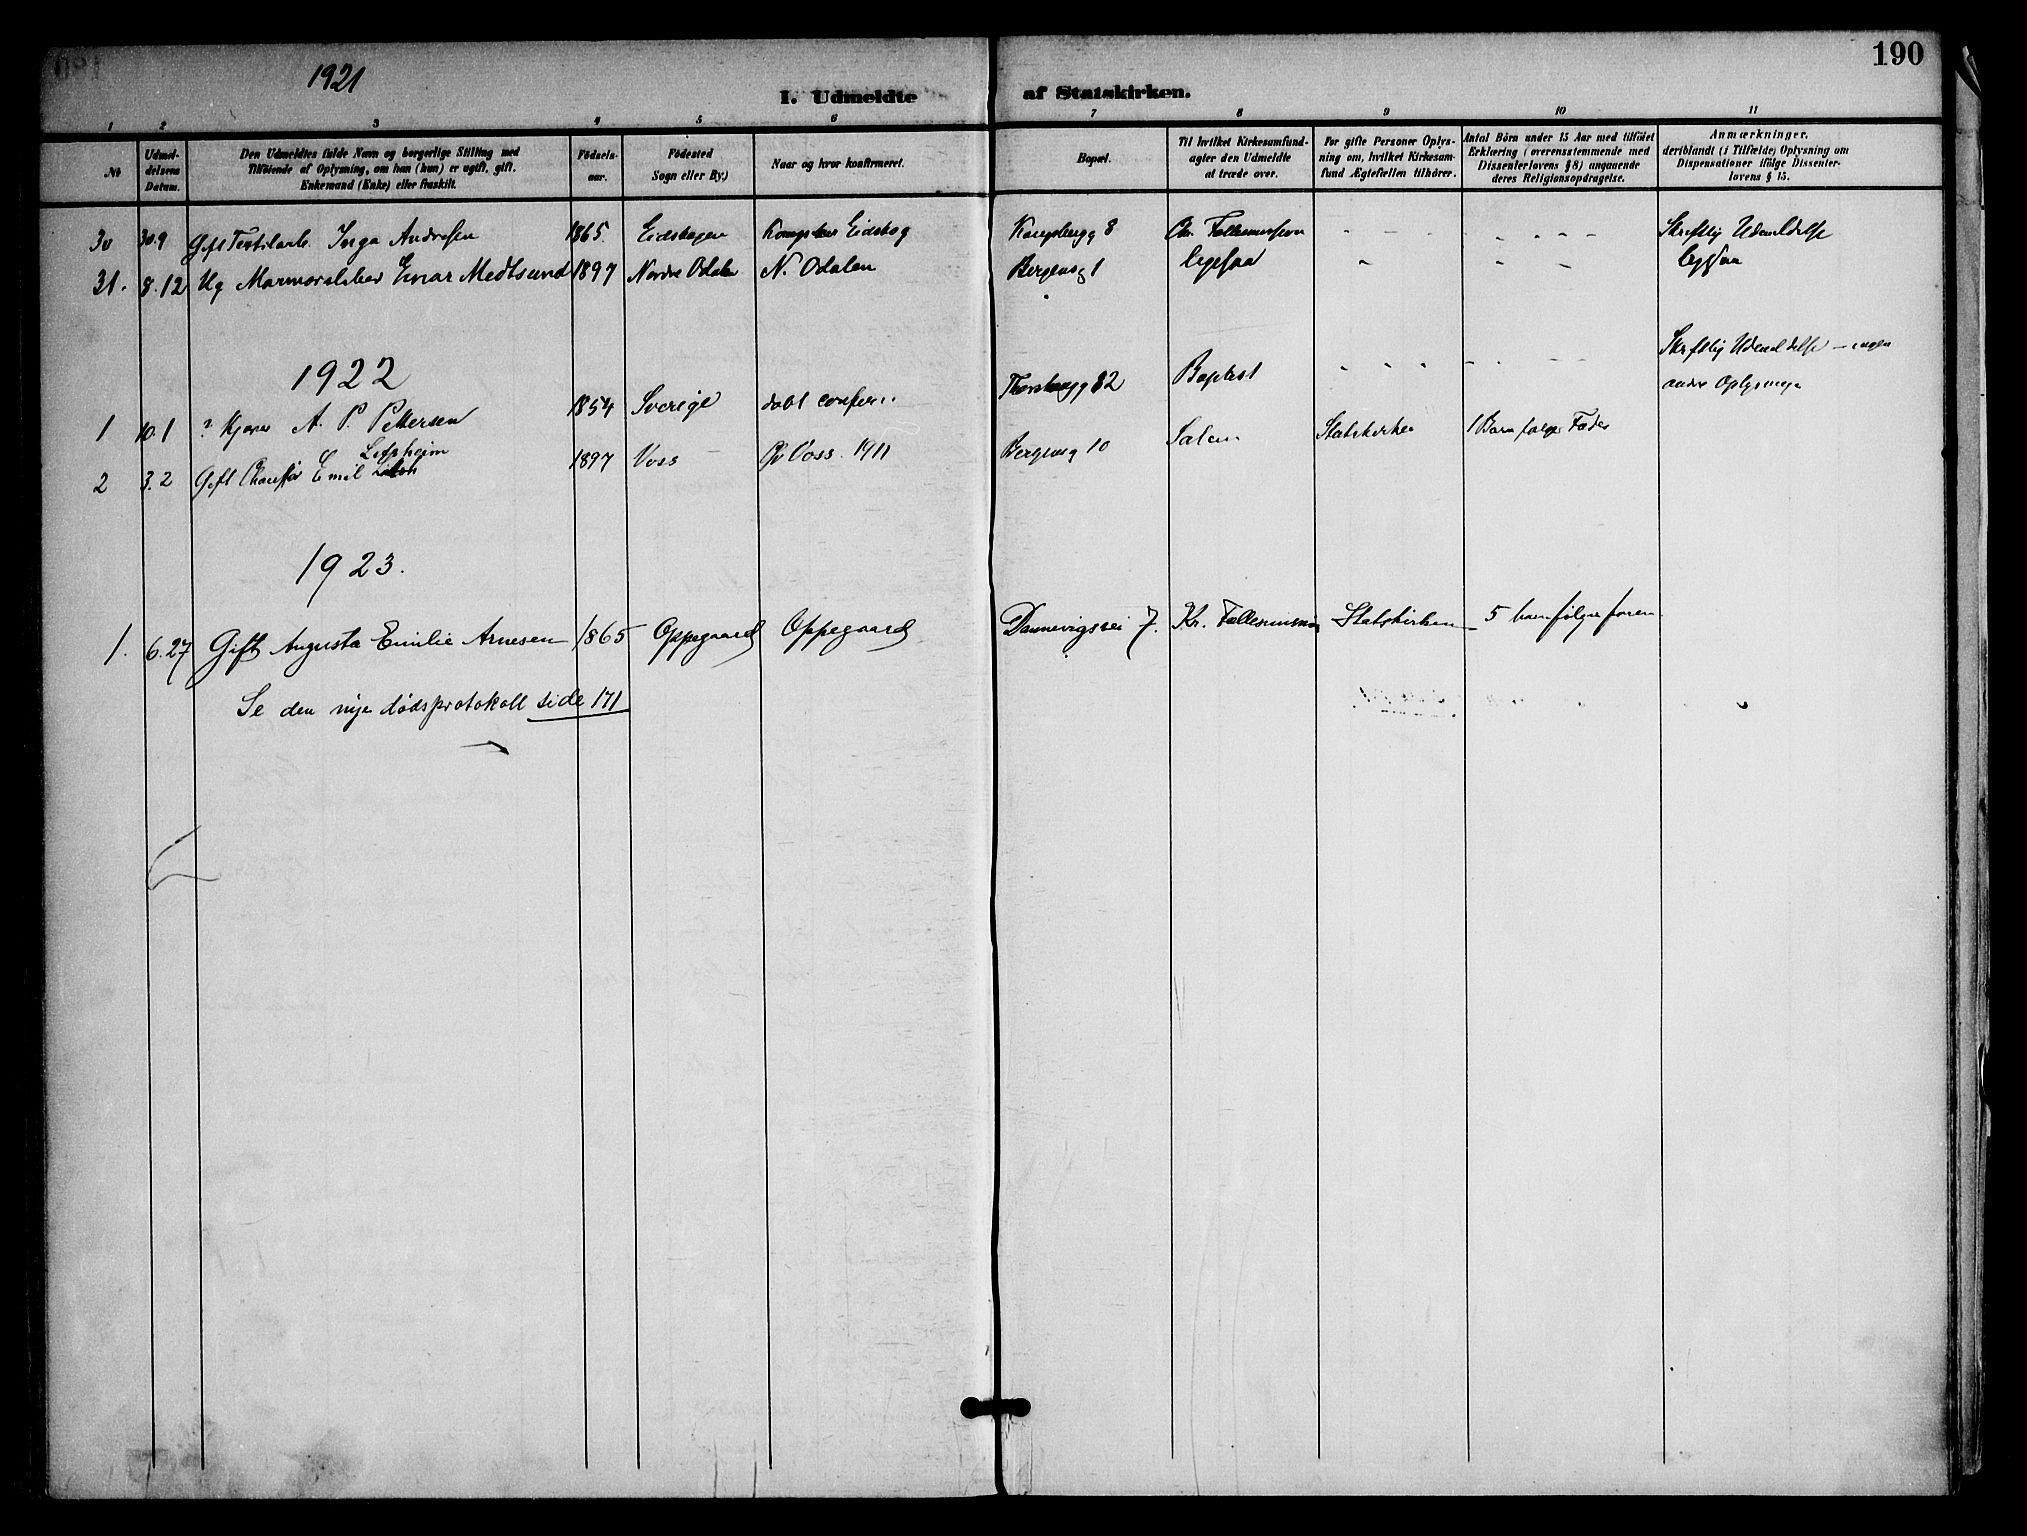 190
1921
I. Udmeldte af Statskirken.
1 2 3 4 5 6 7 8 9 10 11
№
Udmel-
delsens
Datum.
Den Udmeldtes fulde Navn og borgerlige Stilling med
Tilföiende af Oplysning, om han (hun) er ugift, gift.
Enkemand (Enke) eller fraskilt.
Födsels-
aar.
Födested
Sogn eller By.)
Naar og hvor konfirmeret.
Bopæl.
Til hvilket Kirkesamfund-
agter den Udmeldte
at træde over.
For gifte Personer Oplys-
ning om, hvilket Kirkesam-
fund Ægtefællen tilhörer.
Antal Börn under 15 Aar med tilföiet
Erklæring (overensstemmende med
Dissenterlovens § 8) angaaende
deres Religionsopdragelse.
Anmærkninger.
deriblandt (i Tilfælde) Oplysning om
Dispensationer ifölge Dissenter-
lovens § 15.
30 30.9 Gift Inga Andresen 1865. Eidskogen Eidskog Kongsbergg 8 Skriftlig Udmeldelse
31. 8.12 Ug Einar Medtsund 1897 Nordre Odalen N. Odalen Bergensg 1 ligesaa ligesaa
1922
1 10.1 ? A. P. Pettersen 1854 Sverige døbt Baptist Skriftlig Udmeldelse – ingen
andre Oplysninger
2 3.2 Gift Chauffør Emil 1897 Voss Voss 1911 Bergensg 10 Salem Statskirken 1 Barn følger Fader
1923.
1. 6.27 Gift Augusta Emilie Arnesen 1865 Oppegaard Oppegaard Dannevigsvei 7. Kr. Statskirken 5 barn følger faren
Se den nye dødsprotokoll side 171